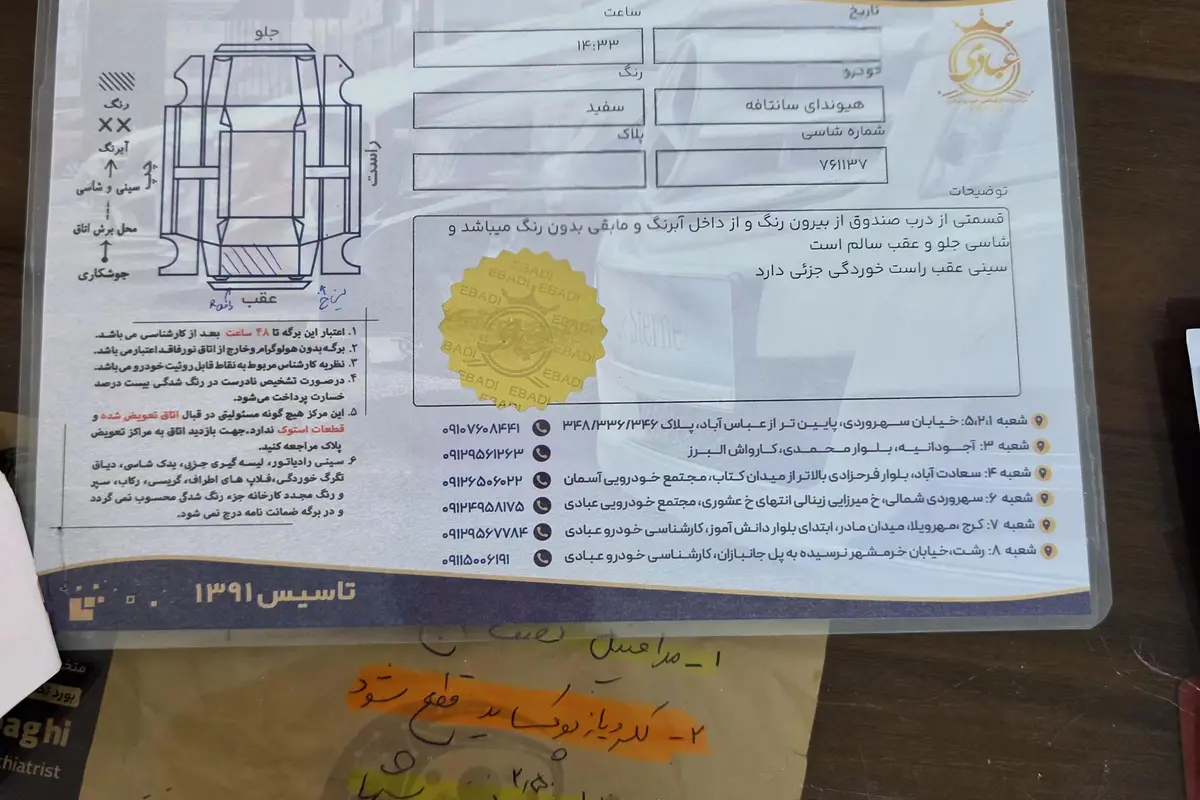 تاریخ
ساعت
۱۴:۳۳
خودرو
رنگ
هیوندای سانتافه
سفید
شماره شاسی
پلاک
۷۶۱۱۳۷
توضیحات
قسمتی از درب صندوق از بیرون رنگ و از داخل آبرنگ و مابقی بدون رنگ میباشد و
شاسی جلو و عقب سالم است
سینی عقب راست خوردگی جزئی دارد
عبادی
جلو
راست
چپ
عقب
رنگ
××
آبرنگ
سینی و شاسی
محل برش اتاق
جوشکاری
۱. اعتبار این برگه تا ۴۸ ساعت بعد از کارشناسی می باشد.
۲. برگه بدون هولوگرام و خارج از اتاق نور فاقد اعتبار می باشد.
۳. نظریه کارشناس مربوط به نقاط قابل روئیت خودرو می باشد.
۴. در صورت تشخیص نادرست در رنگ شدگی بیست درصد
خسارت پرداخت می شود.
۵. این مرکز هیچ گونه مسئولیتی در قبال اتاق تعویض شده و
قطعات استوک ندارد. جهت بازدید اتاق به مراکز تعویض
پلاک مراجعه کنید.
۶. سینی رادیاتور، لیسه گیری جزئی، یدک شاسی، دیاق
تگرگ خوردگی، فلاپ های اطراف، گریسی، رکاب، سپر
و رنگ مجدد کارخانه جزء رنگ شدگی محسوب نمی گردد
و در برگه ضمانت نامه درج نمی شود.
EBADI
EBADI
EBADI
EBADI
EBADI
EBADI
EBADI
EBADI
شعبه ۵،۲،۱: خیابان سهروردی، پایین تر از عباس آباد، پلاک ۳۴۸/۳۳۶/۳۴۶ ۰۹۱۰۷۶۰۸۴۴۱
شعبه ۳: آجودانیه، بلوار محمدی، کارواش البرز ۰۹۱۲۹۵۶۱۲۶۳
شعبه ۴: سعادت آباد، بلوار فرحزادی بالاتر از میدان کتاب، مجتمع خودرویی آسمان ۰۹۱۲۶۵۰۶۰۲۲
شعبه ۶: سهروردی شمالی، خ میرزایی زینالی انتهای خ عشوری، مجتمع خودرویی عبادی ۰۹۱۲۴۹۵۸۱۷۵
شعبه ۷: کرج، مهرویلا، میدان مادر، ابتدای بلوار دانش آموز، کارشناسی خودرو عبادی ۰۹۱۲۹۵۶۷۷۸۴
شعبه ۸: رشت، خیابان خرمشهر نرسیده به پل جانبازان، کارشناسی خودرو عبادی ۰۹۱۱۵۰۰۶۱۹۱
تاسیس ۱۳۹۱
۱-
۲- شود
aghi
hiatrist